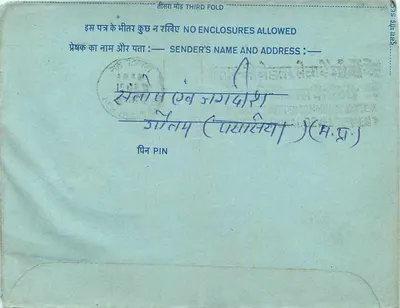 तीसरा मोड़ THIRD FOLD
इस पत्र के भीतर कुछ न रखिए NO ENCLOSURES ALLOWED
प्रेषक का नाम और पता : — SENDER'S NAME AND ADDRESS : —
संतोष एंव जगदीश
गौतम (परासिया) (म.प्र.)
पिन PIN